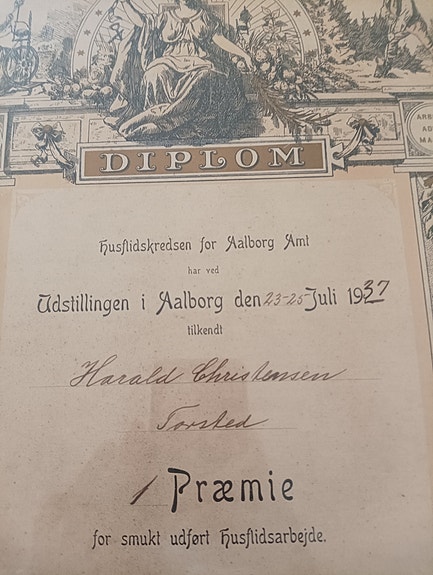 DIPLOM
ARB
AD
MA
Husflidskredsen for Aalborg Amt
har ved
Udstillingen i Aalborg den 23-25 Juli 1937
tilkendt
Harald Christensen
Torsted
1 Præmie
for smukt udført Husflidsarbejde.